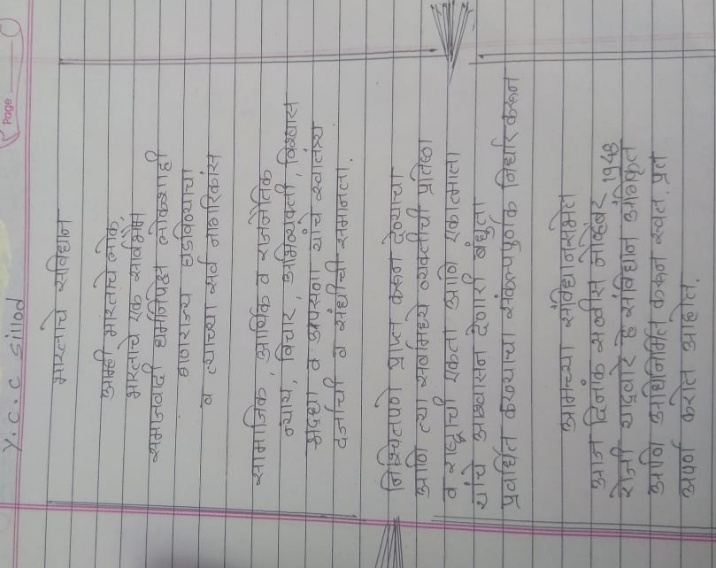 Page
Y.C.C sillod
भारताचे संविधान
आम्ही भारताचे लोक,
भारताचे एक सार्वभौम
समाजवादी धर्मनिरपेक्ष लोकशाही
गणराज्य घडविण्याचा
व त्याच्या सर्व नागरिकांस
सामाजिक, आर्थिक व राजनैतिक
न्याय, विचार, अभिव्यक्ती, विश्वास
श्रद्धा व उपासना यांचे स्वातंत्र्य
दर्जाची व संधीची समानता.
निश्चितपणे प्राप्त करून देण्याचा
आणि त्या सर्वांमध्ये व्यक्तीची प्रतिष्ठा
व राष्ट्राची एकता आणि एकात्मता
यांचे आश्वासन देणारी बंधुता
प्रवर्धित करण्याचा संकल्पपुर्वक निर्धार करून
आमच्या संविधानसभेत
आज दिनांक सव्वीस नोव्हेंबर 1949
रोजी याद्वारे हे संविधान अंगिकृत
आणि अधिनियमित करून स्वत. प्रत
अर्पण करीत आहोत.